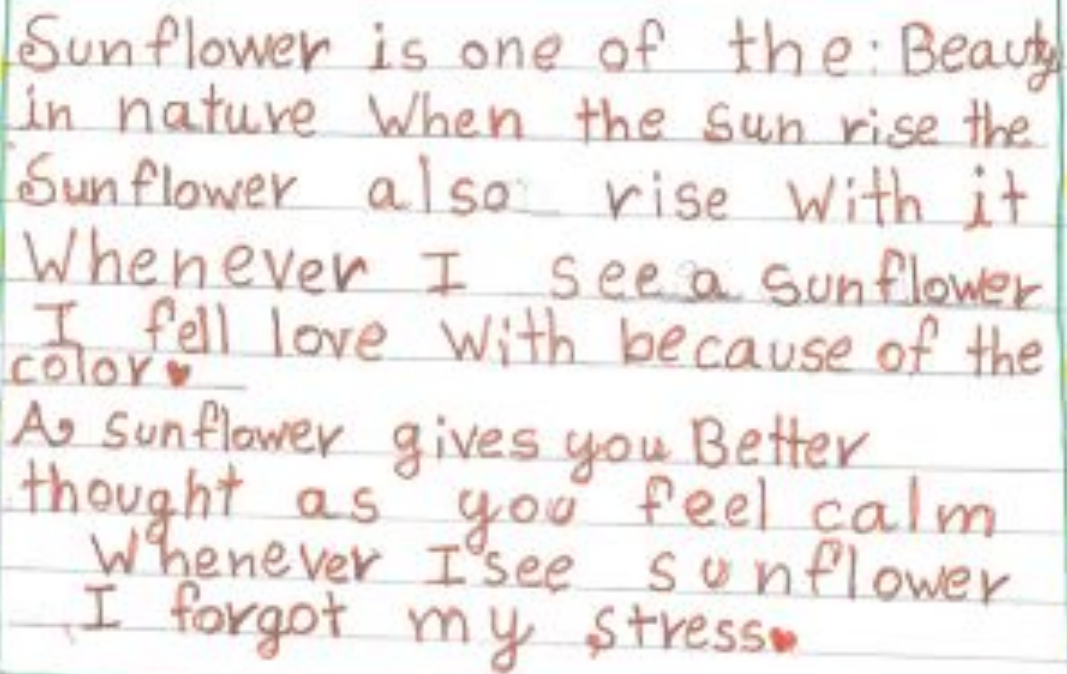 Sunflower is one of the: Beauty
in nature When the sun rise the
Sunflower also rise With it
Whenever I see a sunflower
I fell love With because of the
color♥
A sunflower gives you Better
thought as you feel calm
Whenever I see sunflower
I forgot my stress♥